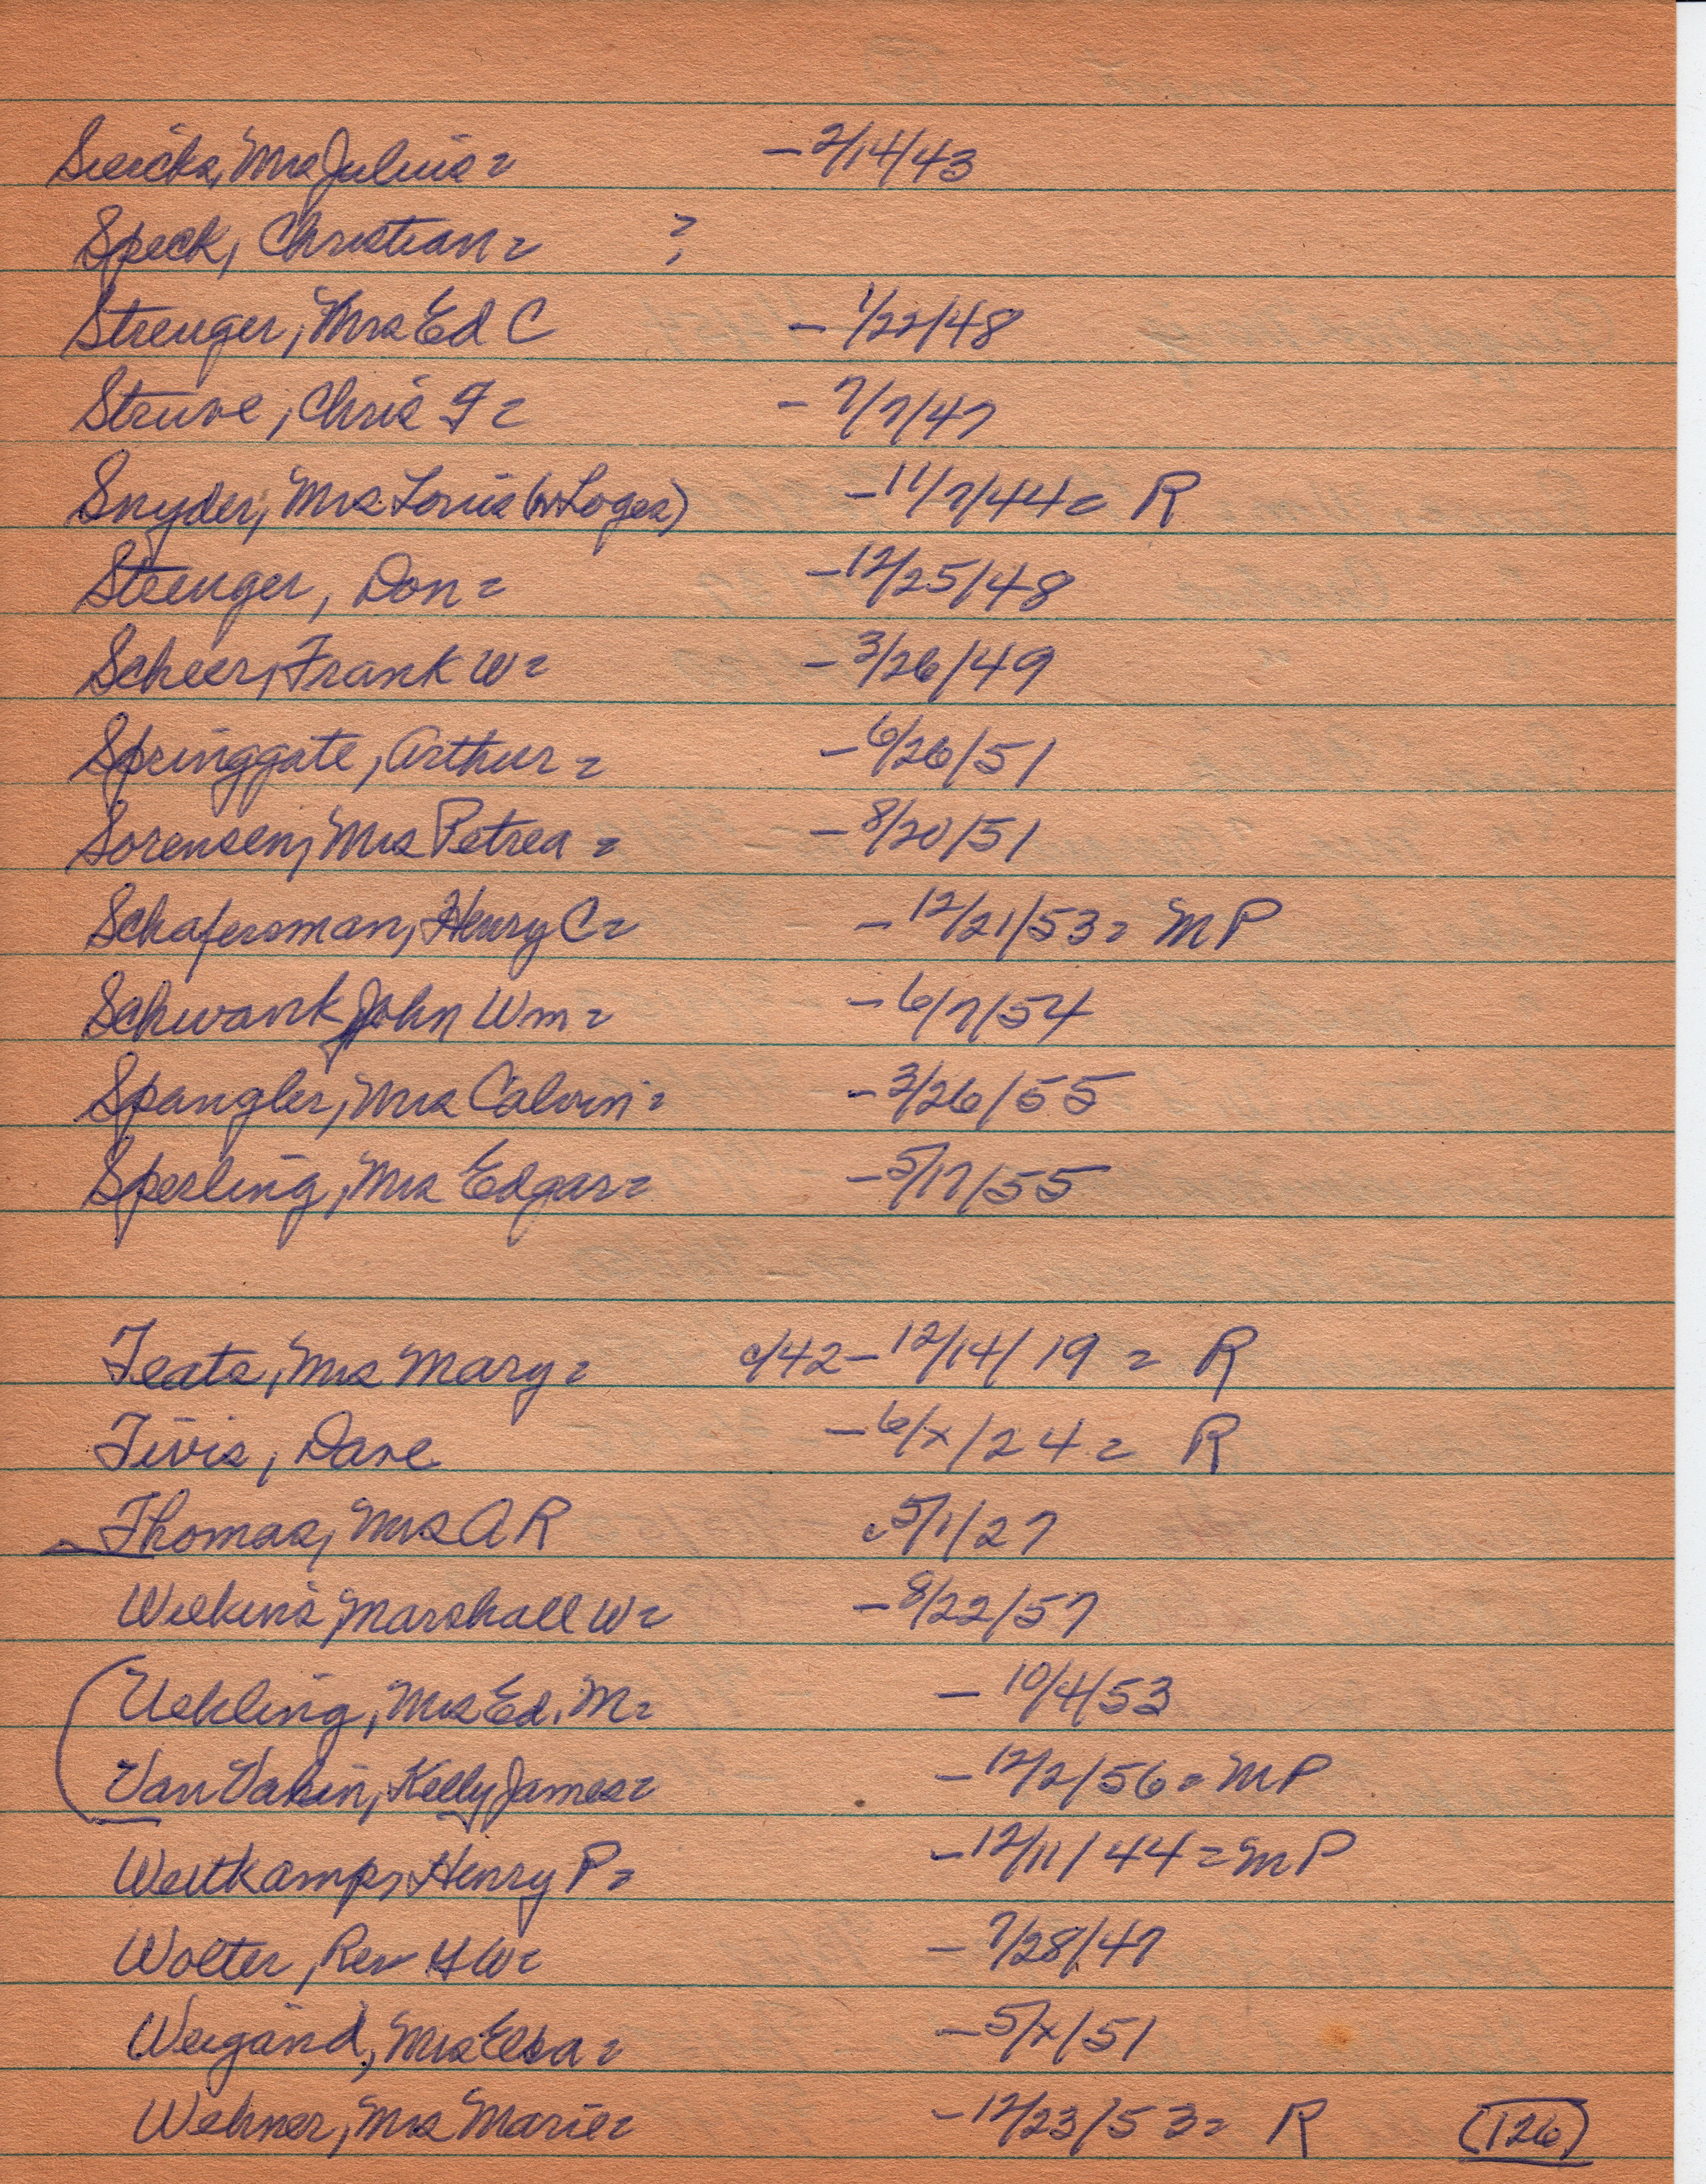 Sieicks, Mrs Julius = - 2/14/43
Speck, Christian = ?
Strenger, Mrs Ed C - 1/22/48
Struve, Chris F = - 7/7/47
Snyder, Mrs Louis (w Loges) - 11/7/44 = R
Strenger, Don = - 12/25/48
Scheer, Frank W = - 3/26/49
Springgate, Arthur = - 6/26/51
Sorensen, Mrs Petrea = - 8/20/51
Schafersman, Henry C = - 12/21/53 = MP
Schwank John Wm = - 6/7/54
Spangler, Mrs Calvin = - 3/26/55
Sperling, Mrs Edgar = - 5/17/55
Teats, Mrs Mary = c/42 - 12/14/19 = R
Tivis, Dave - 6/x/24 = R
Thomas, Mrs A R c 5/1/27
Wilkins, Marshall W = - 8/22/57
Uehling, Mrs Ed. M = - 10/4/53
VanVakin, Kelly James = - 12/2/56 = MP
Weitkamp, Henry P = - 12/11/44 = MP
Wolter, Rev H W = - 7/28/47
Weigand, Mrs Elsa = - 5/x/51
Wehner, Mrs Marie = - 12/23/53 = R (126)